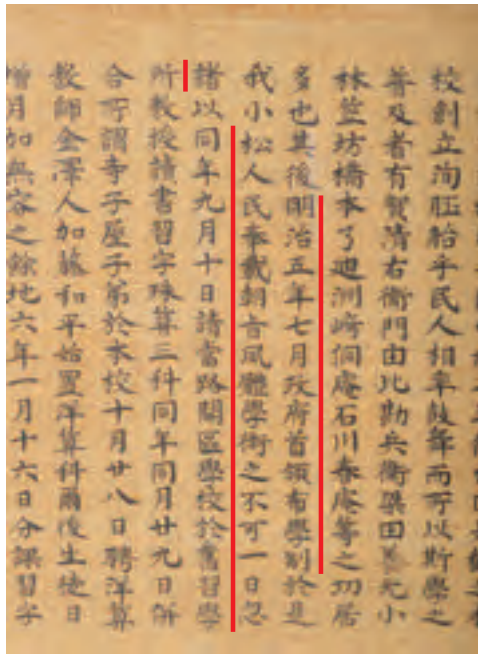 校創立洵胚胎乎民人相率鼓舞而所以斯學之
普及者有賀清右衛門由比勘兵衛梁田小
林竺坊橋本了廸洲崎伺庵石川春庵等之功居
多也其後明治五年七月政府首領布學制於是
我小松人民奉戴朝旨風軆學術之不可一日忽
諸以同年九月十日請當路開區學校於舊習學
所教授讀書習字珠算三科同年同月廿九日併
合所謂寺子屋子弟於本校十月廿八日聘洋算
教師金澤人加藤和平始置洋算科爾後生徒日
增月加無容之餘地六年一月十六日分課習字